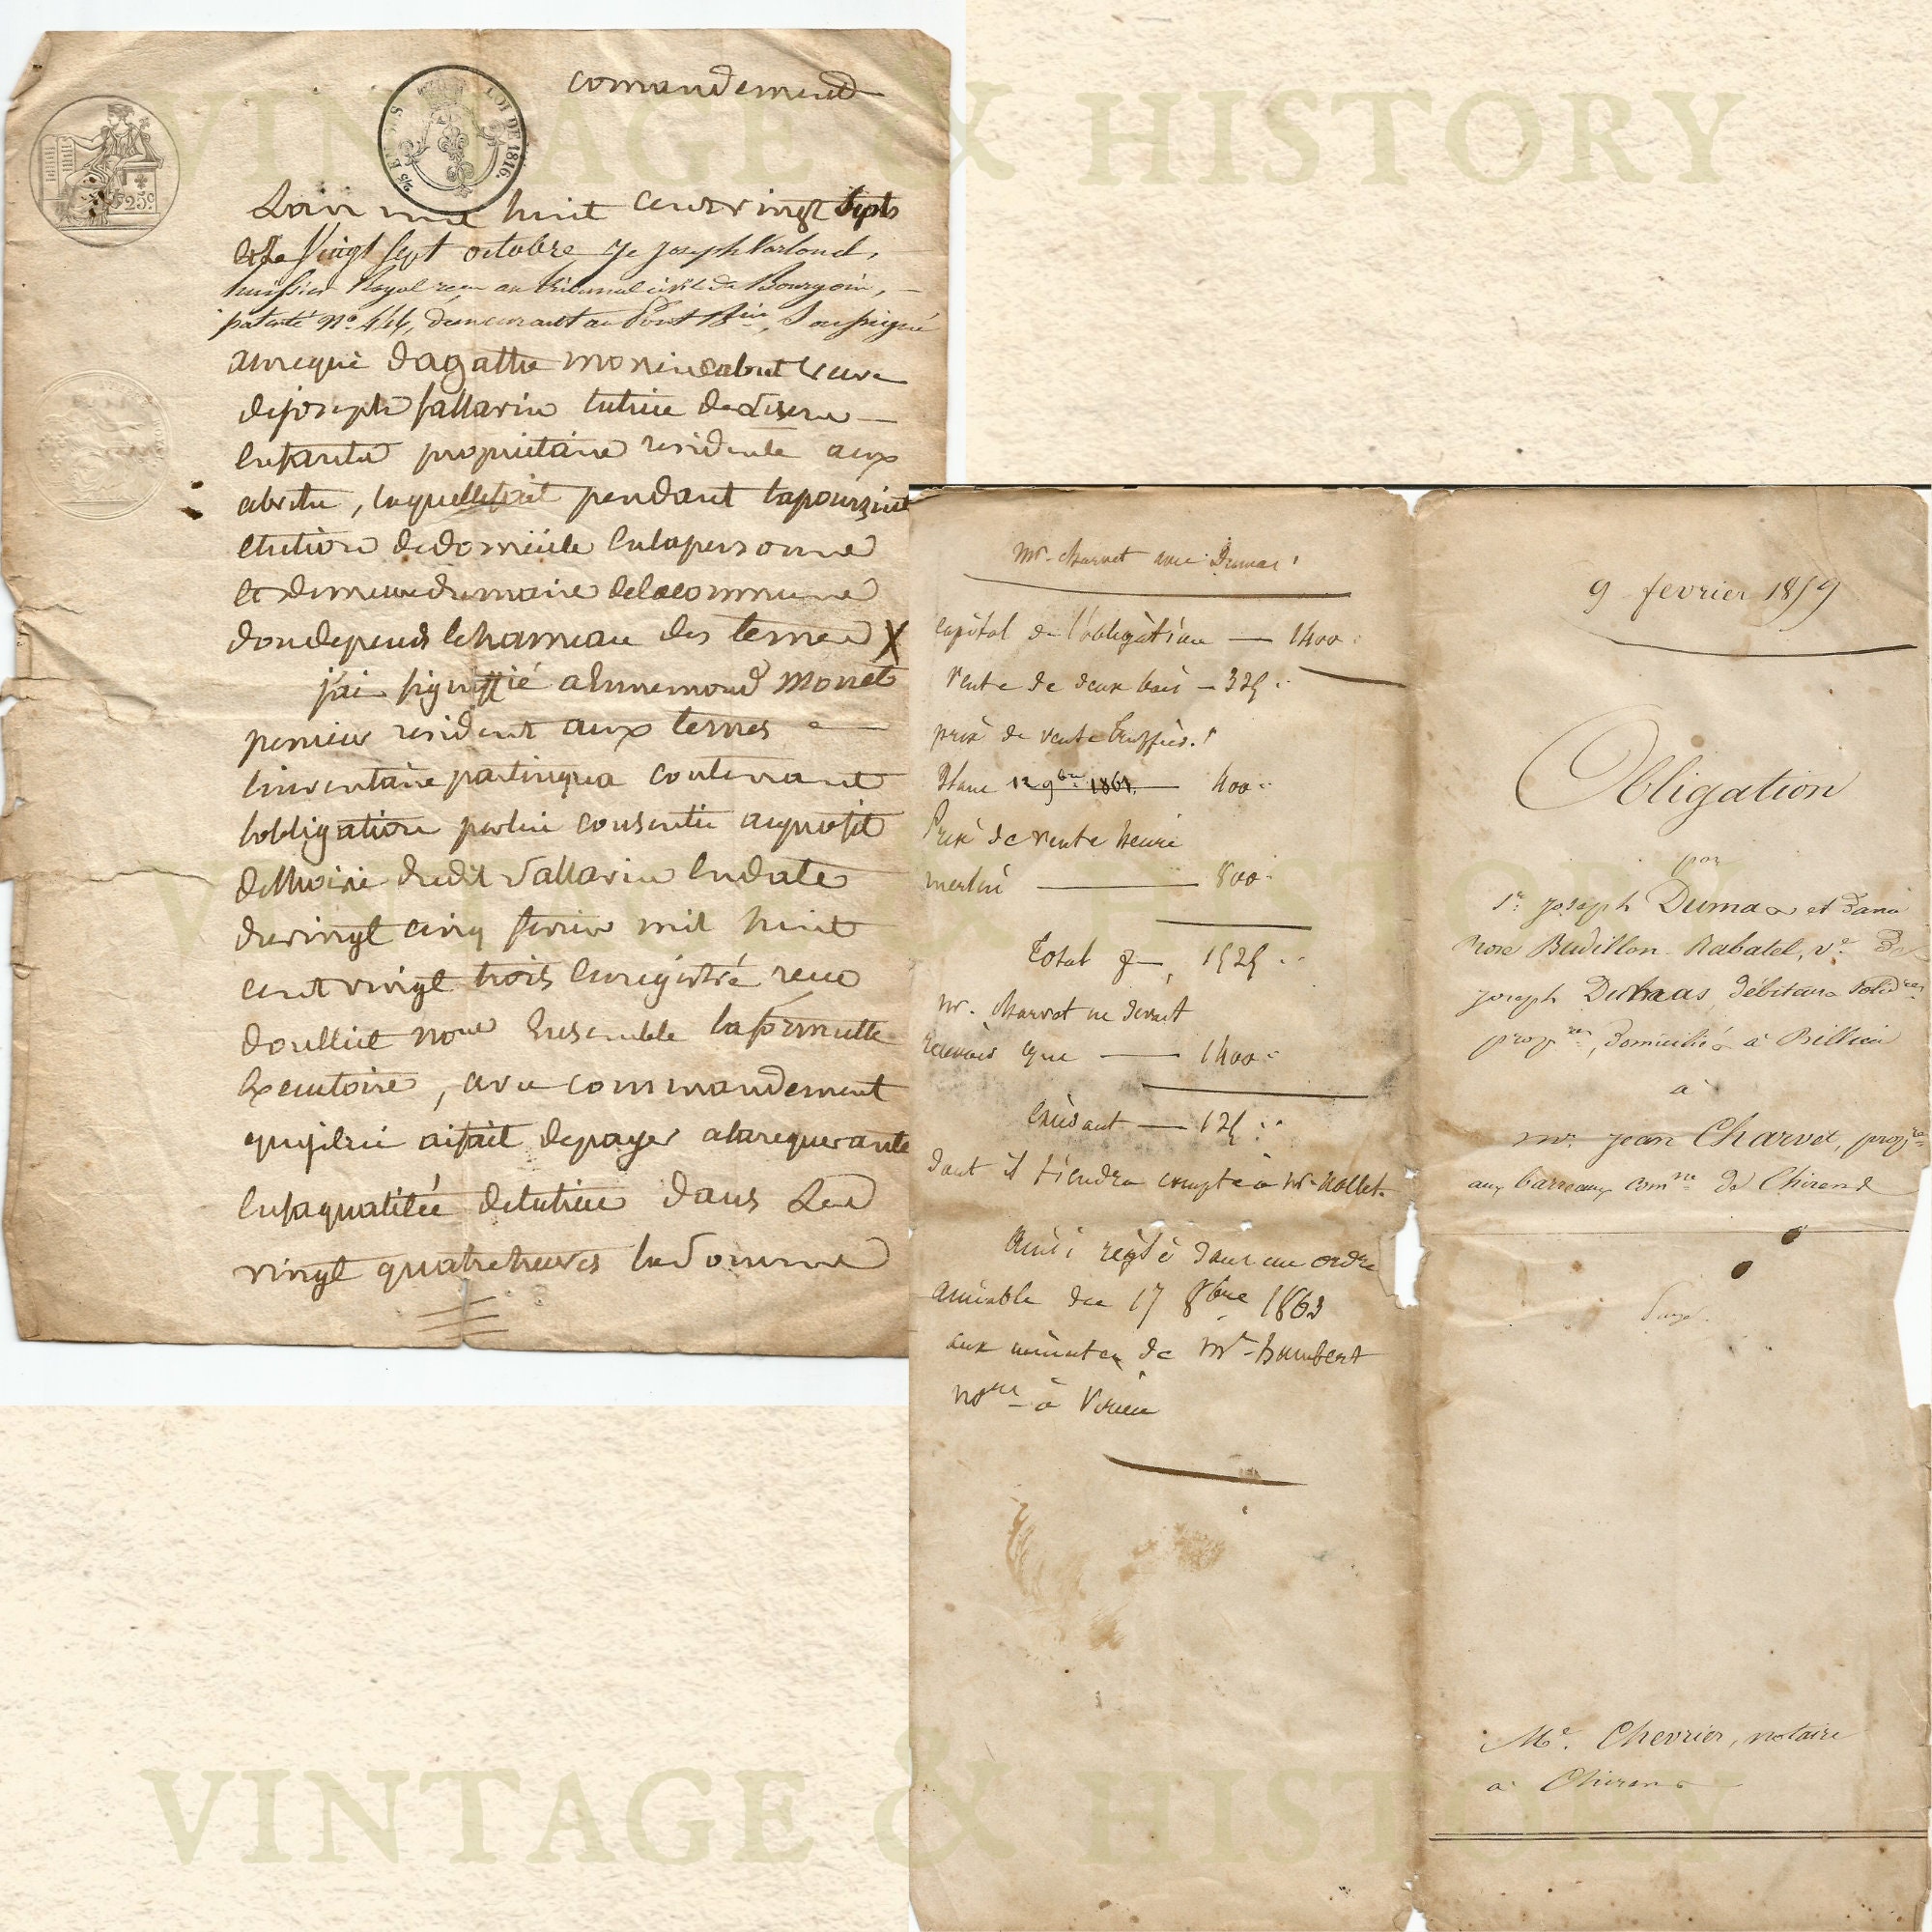 VINTAGE & HISTORY
comandement
LOI DE 1816.
25c
Lan mil huit cent vingt Sept
et le Vingt Sept octobre, Je Joseph
huissier Royal reçu au tribunal civil de Bourgoin,
patenté No. 444, demeurant au Pont Bin, Soussigné
a la requete dagathe veuve
de joseph Vallavin tutrice de leurs
enfants proprietaire residente aux
abrets, laquelle fait pendant la poursuite
election de domicile en la personne
et demeure du maire de la commune
dont depend le hameau des ternes X
jai signiffié a Ennemond Monet
residant aux ternes
linventaire contenant
lobligation par lui consentie au profit
dudit Vallavin en date
du vingt cinq fevrier mil huit
cent vingt trois enregistré recu
nore Ensemble la formulle
Executoire, avec commandement
que je lui ai fait de payer a la requerante
en sa qualitée de tutrice dans Les
vingt quatre heures la somme
VINTAGE & HISTORY
mr. Charvet avec Dumas
Capital de l'obligation — 1400
Vente de deux bois — 325
prix de vente
Blanc 12 9bre 1861. — 400
Prix de vente henri
merlin — 800
Total — 1525
mr. Charvet ne devait
recevoir que — 1400
Excédant — 125
dont il tiendra compte à Mr.
Ainsi reglé dans un ordre
amiable du 17 8bre 1863
aux minutes de Mr humbert
nore à Virieu
9 fevrier 1859
Obligation
par
Sr. Joseph Dumas et Dame
Rose Budillon-Rabatel, ve. De
Joseph Dumas, débiteurs solidres
propres, domiciliés à Bilieu
à
Mr. Jean Charvet, propre
aux barreaux comne de Chirens
Me. Chevrier, notaire
à Chirens
VINTAGE & HISTORY